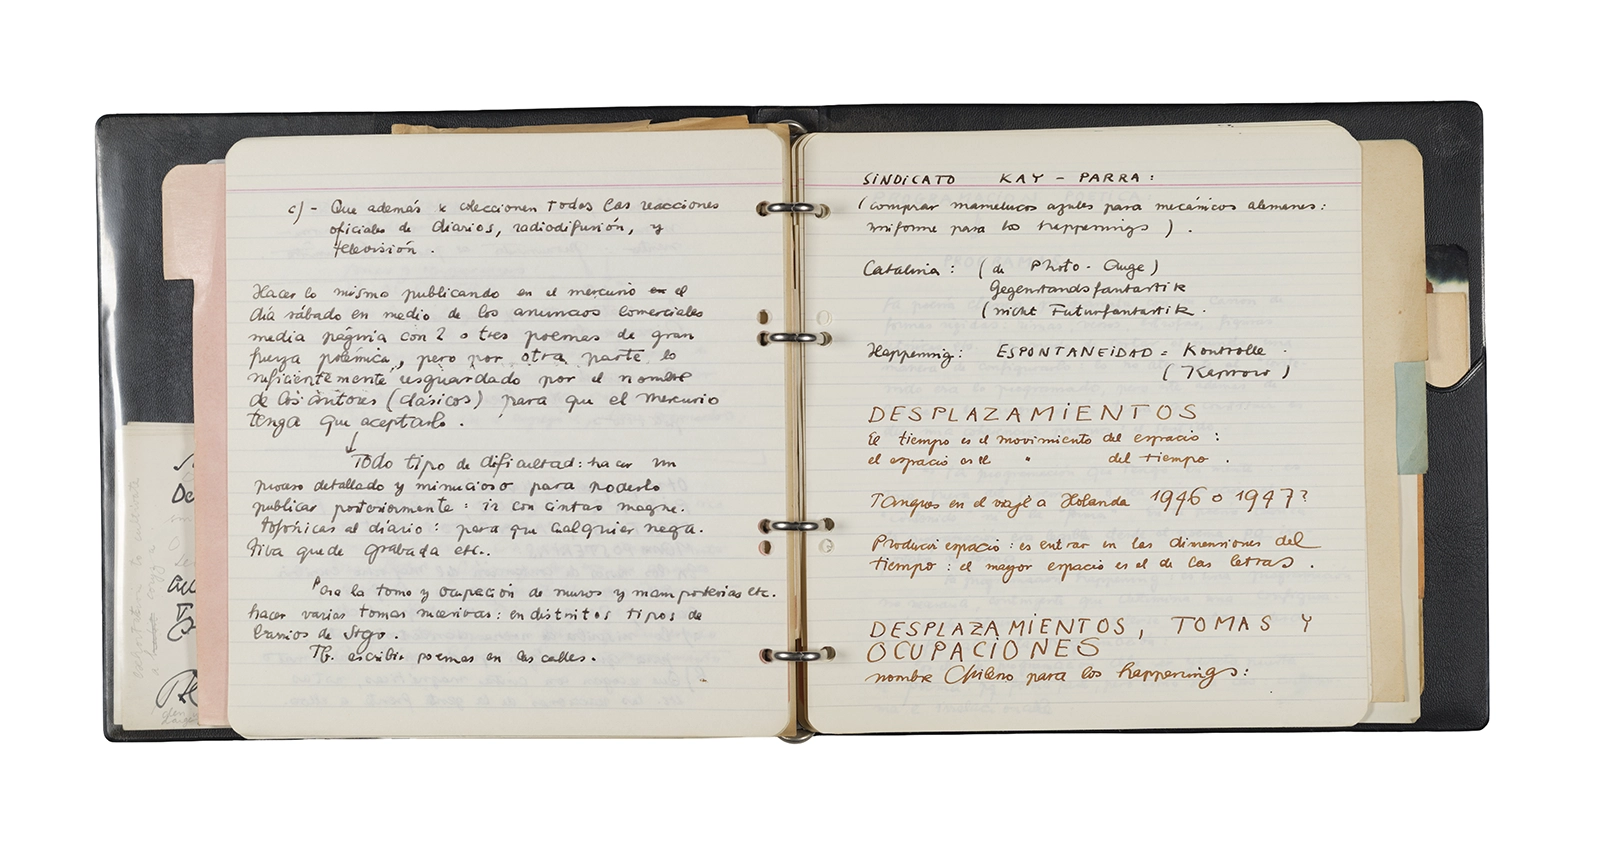 c) - Que además se coleccionen todas las reacciones
oficiales de diarios, radiodifusión, y
televisión.
Hacer lo mismo publicando en el mercurio en el
día sábado en medio de los anuncios comerciales
media página con 2 o tres poemas de gran
fuerza polémica, pero por otra parte lo
suficientemente resguardado por el nombre
de los autores (clásicos) para que el mercurio
tenga que aceptarlo.
Todo tipo de dificultad: hacer un
proceso detallado y minucioso para poderlo
publicar posteriormente: ir con cintas magne.
tofónicas al diario: para que cualquier nega.
tiva quede grabada etc.
Para la toma y ocupación de muros y mamposterías etc.
hacer varias tomas sucesivas: en distintos tipos de
barrios de Stgo.
Tb. escribir poemas en las calles.
SINDICATO KAY - PARRA:
(comprar mamelucos azules para mecánicos alemanes:
uniforme para los happenings).
Catalina: (de Photo-Auge)
Gegenstandsfantastik
(nicht Futurfantastik.
Happening: ESPONTANEIDAD = Kontrolle.
(Kaprow)
DESPLAZAMIENTOS
El tiempo es el movimiento del espacio:
el espacio es el " del tiempo.
Tanques en el viaje a Holanda 1946 o 1947?
Producir espacio: es entrar en las dimensiones del
tiempo: el mayor espacio es el de las letras.
DESPLAZAMIENTOS, TOMAS Y
OCUPACIONES
nombre Chileno para los happenings: